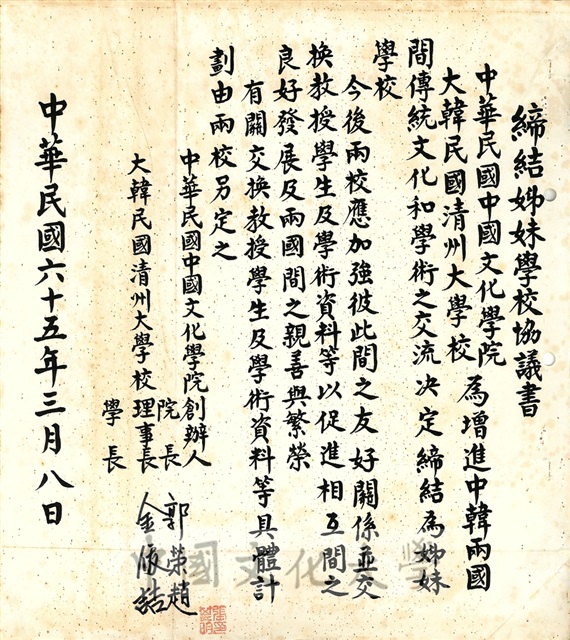 締結姊妹學校協議書
中華民國中國文化學院
大韓民國清州大學校
為增進中韓兩國
間傳統文化和學術之交流決定締結為姊妹
學校
今後兩校應加強彼此間之友好關係並交
換教授學生及學術資料等以促進相互間之
良好發展及兩國間之親善與繁榮
有關交換教授學生及學術資料等具體計
劃由兩校另定之
中華民國中國文化學院創辦人
院長
郭榮趙
大韓民國清州大學校理事長
學長
中華民國六十五年三月八日
中國文化大學